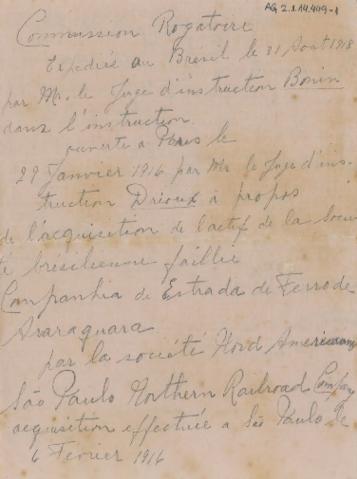 AG 2.1.14.449-1
Commission Rogatoire
Expediée au Brésil le 31 Août 1918
par Mr. le Juge d'instruction Bonin
dans l'instruction
ouverte a Paris le
29 Janvier 1916 par Mr le Juge d'ins-
truction Drioux à propos
de l'acquisition de l'actif de la Socie
té brésilienne faillie
Companhia de Estrada de Ferro de
Araraquara
par la société Nord Americaine
São Paulo Northern Railroad Company
acquisition effectuée a São Paulo le
6 Février 1916